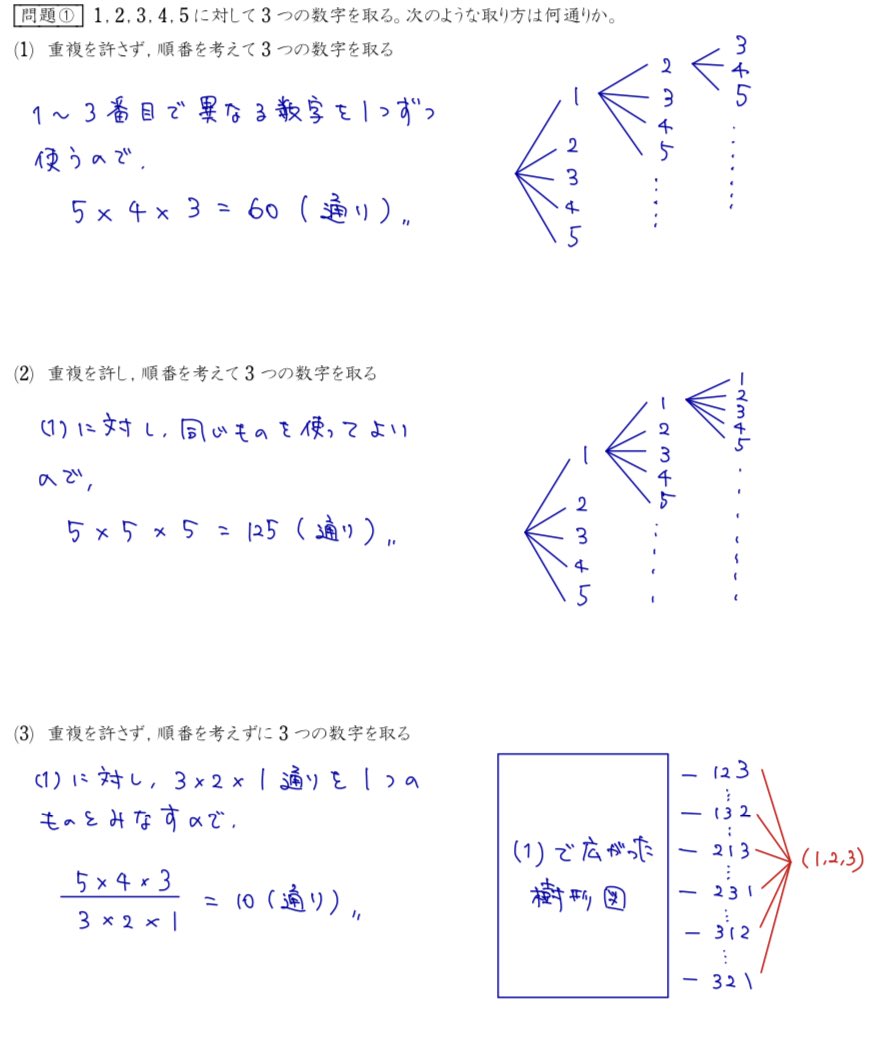 問題① 1, 2, 3, 4, 5 に対して 3 つの数字を取る。次のような取り方は何通りか。
(1) 重複を許さず, 順番を考えて 3 つの数字を取る
1〜3番目で異なる数字を1つずつ
使うので,
5 × 4 × 3 = 60 (通り)〃
1
2
3
4
5
2
3
4
5
3
4
5
(2) 重複を許し, 順番を考えて 3 つの数字を取る
(1)に対し, 同じものを使ってよい
ので,
5 × 5 × 5 = 125 (通り)〃
1
2
3
4
5
1
2
3
4
5
1
2
3
4
5
(3) 重複を許さず, 順番を考えずに 3 つの数字を取る
(1)に対し, 3×2×1通りを1つの
ものとみなすので,
5 × 4 × 3
3 × 2 × 1
= 10 (通り)〃
(1)で広がった
樹形図
— 123
— 132
— 213
— 231
— 312
— 321
(1,2,3)